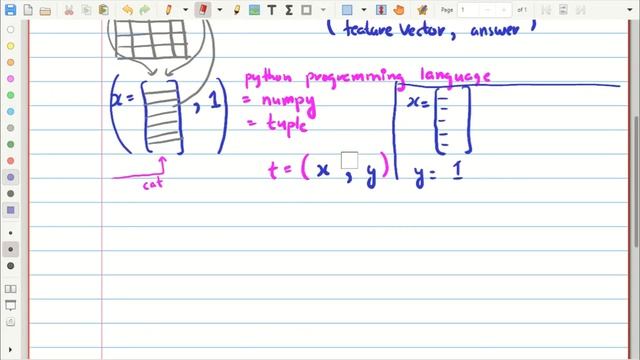 Page 1 of 1
( feature vector, answer )
( x = [ ] , 1 )
cat
python programming language
= numpy
= tuple
t = ( x , y )
x = [ ]
y = 1